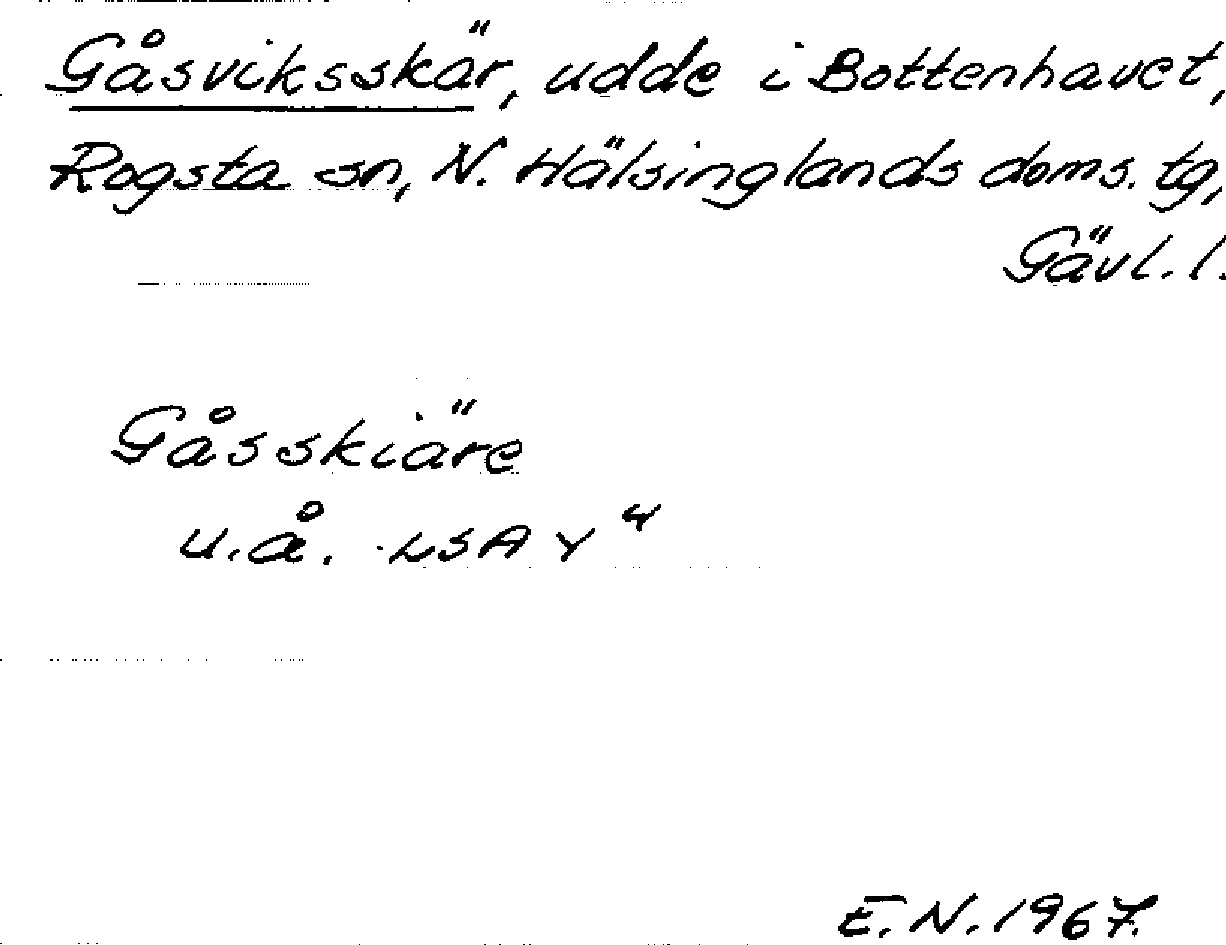 Gåsviksskär, udde i Bottenhavet,
Rogsta sn, N. Hälsinglands doms. tg,
Gävl. l.
Gåsskiäre
u.å. LSA Y 4
E.N. 1967.